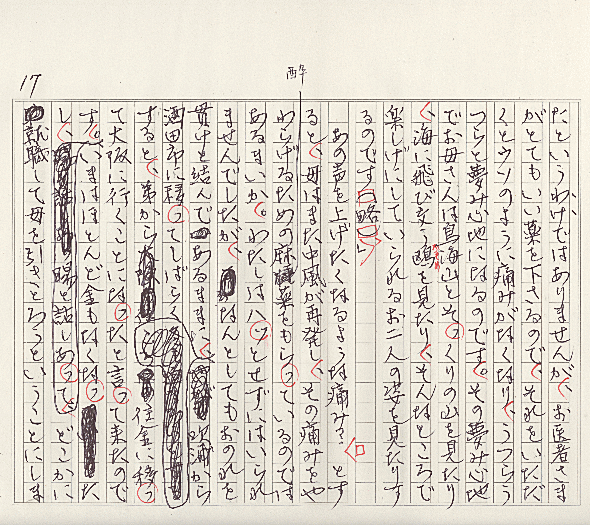 酔
17
たというわけではありませんが、お医者さま
がとてもいい薬を下さるので、それをいただ
くとウソのように痛みがなくなり、うつらう
つらと夢み心地になるのです。その夢み心地
でお母さんは鳥海山とそっくりの山を見たり
、海に飛び交う鴎を見たり、そんなところで
楽しげにしていられるお二人の姿を見たりす
るのです（略）」
あの声を上げたくなるような痛み？とす
ると、母はまた中風が再発し、その痛みをや
わらげるための麻薬をもらっているのでは
あるまいか。わたしはハッとせずにはいられ
ませんでしたが、なんとしてもおのれを
貫けと結んであるままに、吹浦から
酒田市に移ってしばらく
すると、弟から住金に移っ
て大阪に行くことになったと言って来たので
す。いまはほとんど金もなくなった
し、と話しあって、どこかに
就職して母を引きとろうということにしま